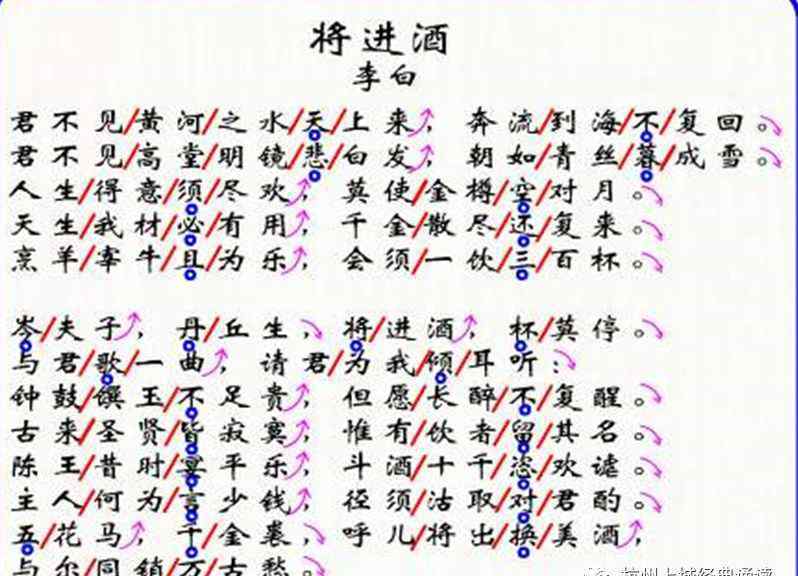 将进酒
李白
君不见/黄河/之水/天/上来, 奔流/到海/不/复回。
君不见/高堂/明镜/悲/白发, 朝如/青丝/暮/成雪。
人生/得意/须/尽欢, 莫使/金樽/空/对月。
天生/我材/必/有用, 千金/散尽/还/复来。
烹羊/宰牛/且/为乐, 会须/一饮/三/百杯。
岑/夫子, 丹/丘生, 将/进酒, 杯/莫停。
与君/歌/一曲, 请君/为我/倾/耳听:
钟鼓/馔玉/不/足贵, 但愿/长醉/不/复醒。
古来/圣贤/皆/寂寞, 惟有/饮者/留/其名。
陈王/昔时/宴/平乐, 斗酒/十千/恣/欢谑。
主人/何为/言/少钱, 径须/沽取/对/君酌。
五/花马, 千/金裘, 呼儿/将出/换/美酒,
与尔/同销/万/古愁。
杭州上城经典诵读